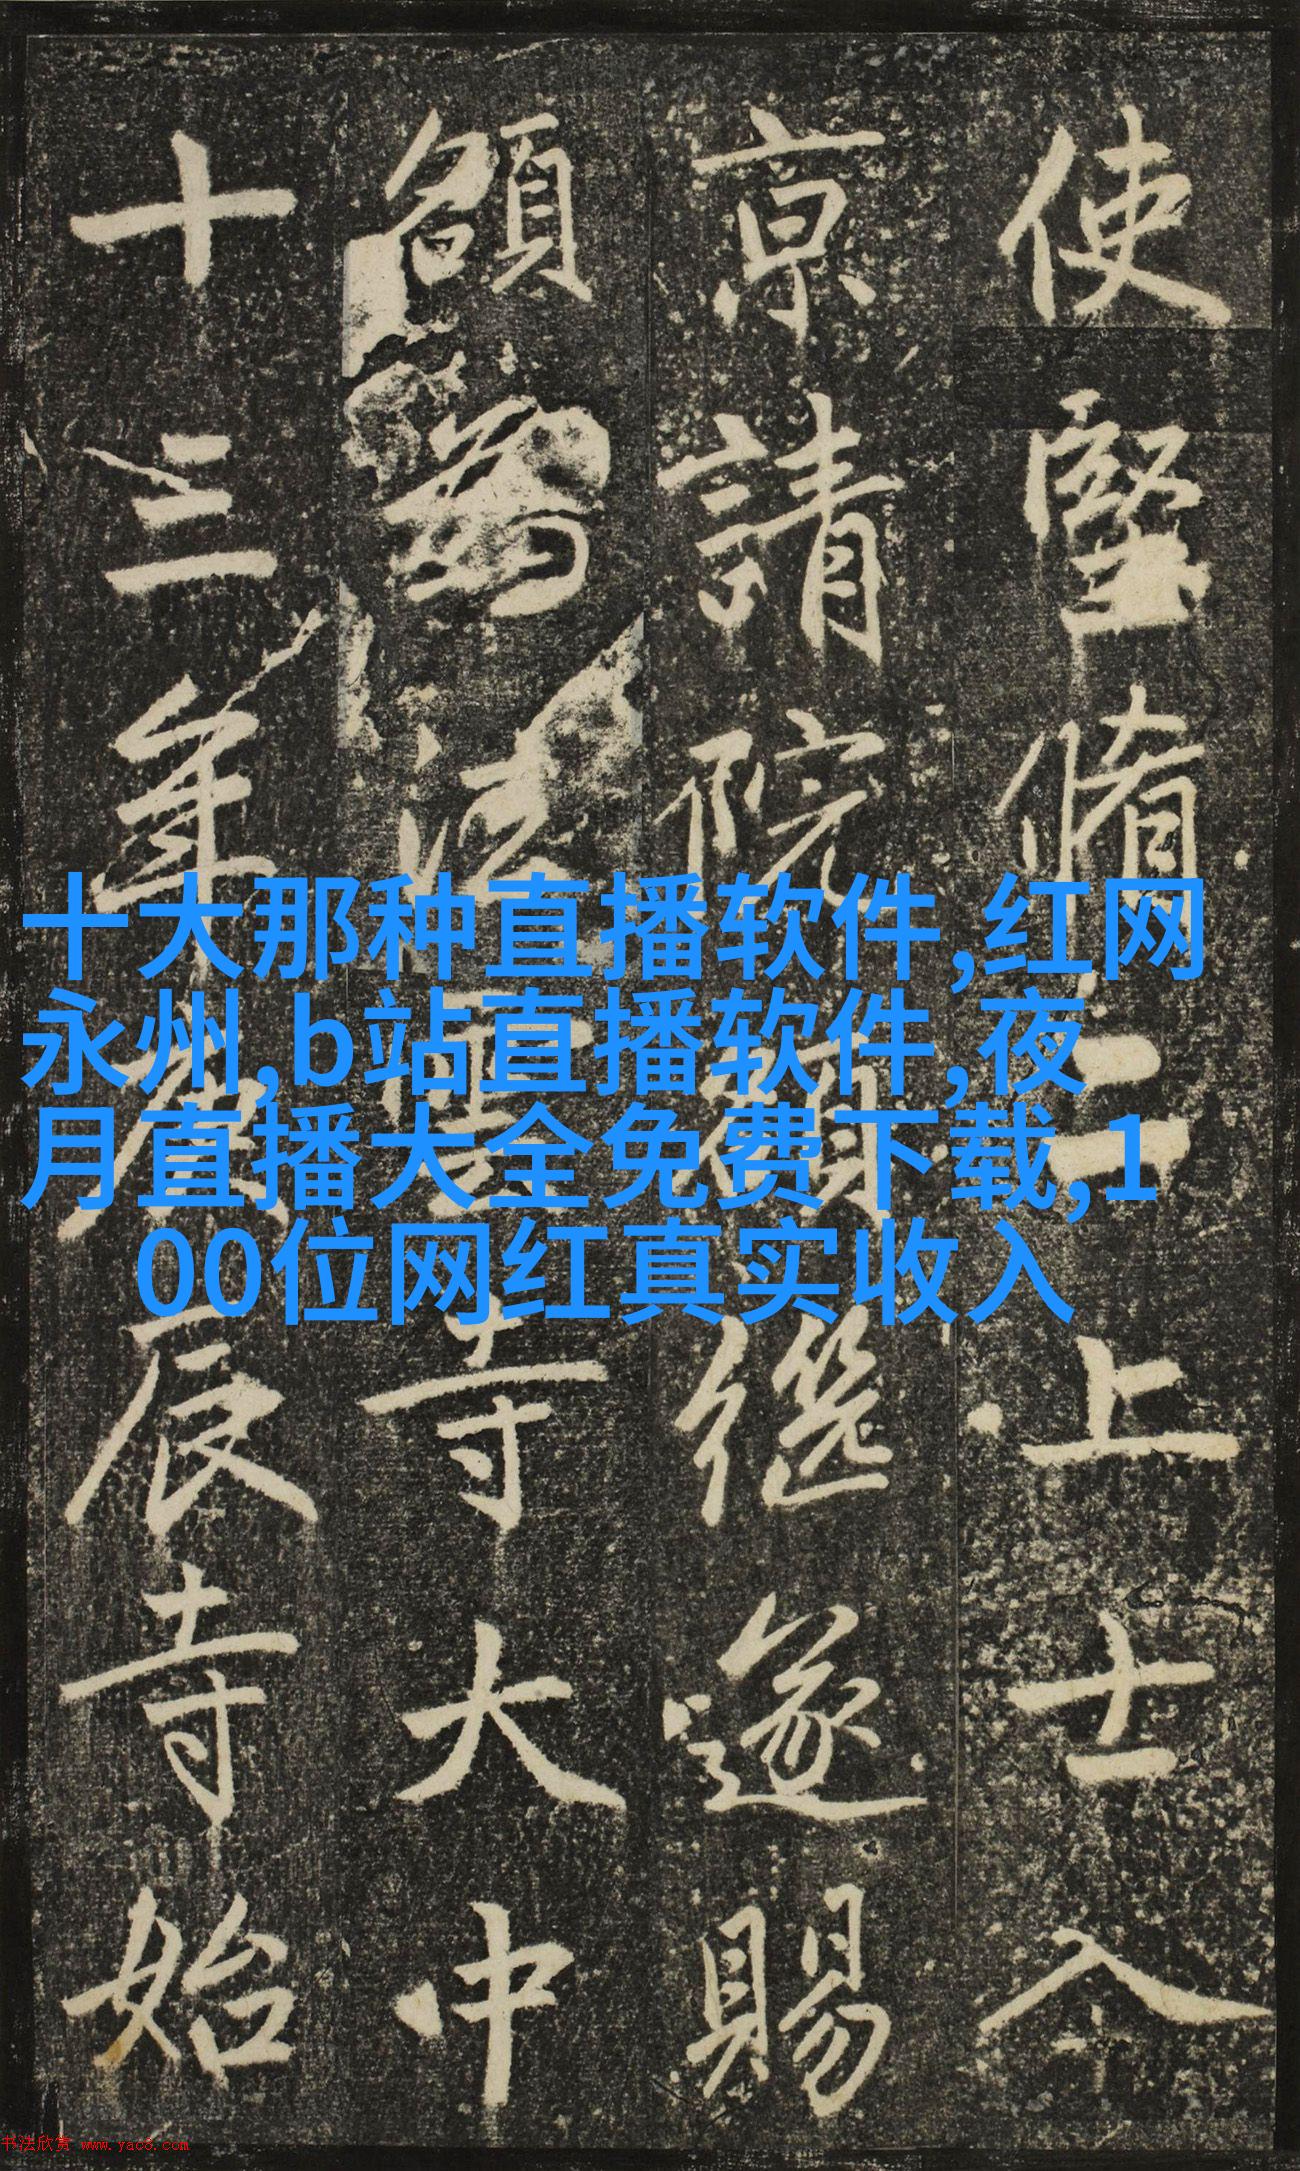 使堅脩二上士入
京請院額繼遂賜
額為法雲寺大中
十三年庚辰寺始
十大那种直播软件,红网
永州,b站直播软件,夜
月直播大全免费下载,1
00位网红真实收入
书法欣赏 www.yac8.com